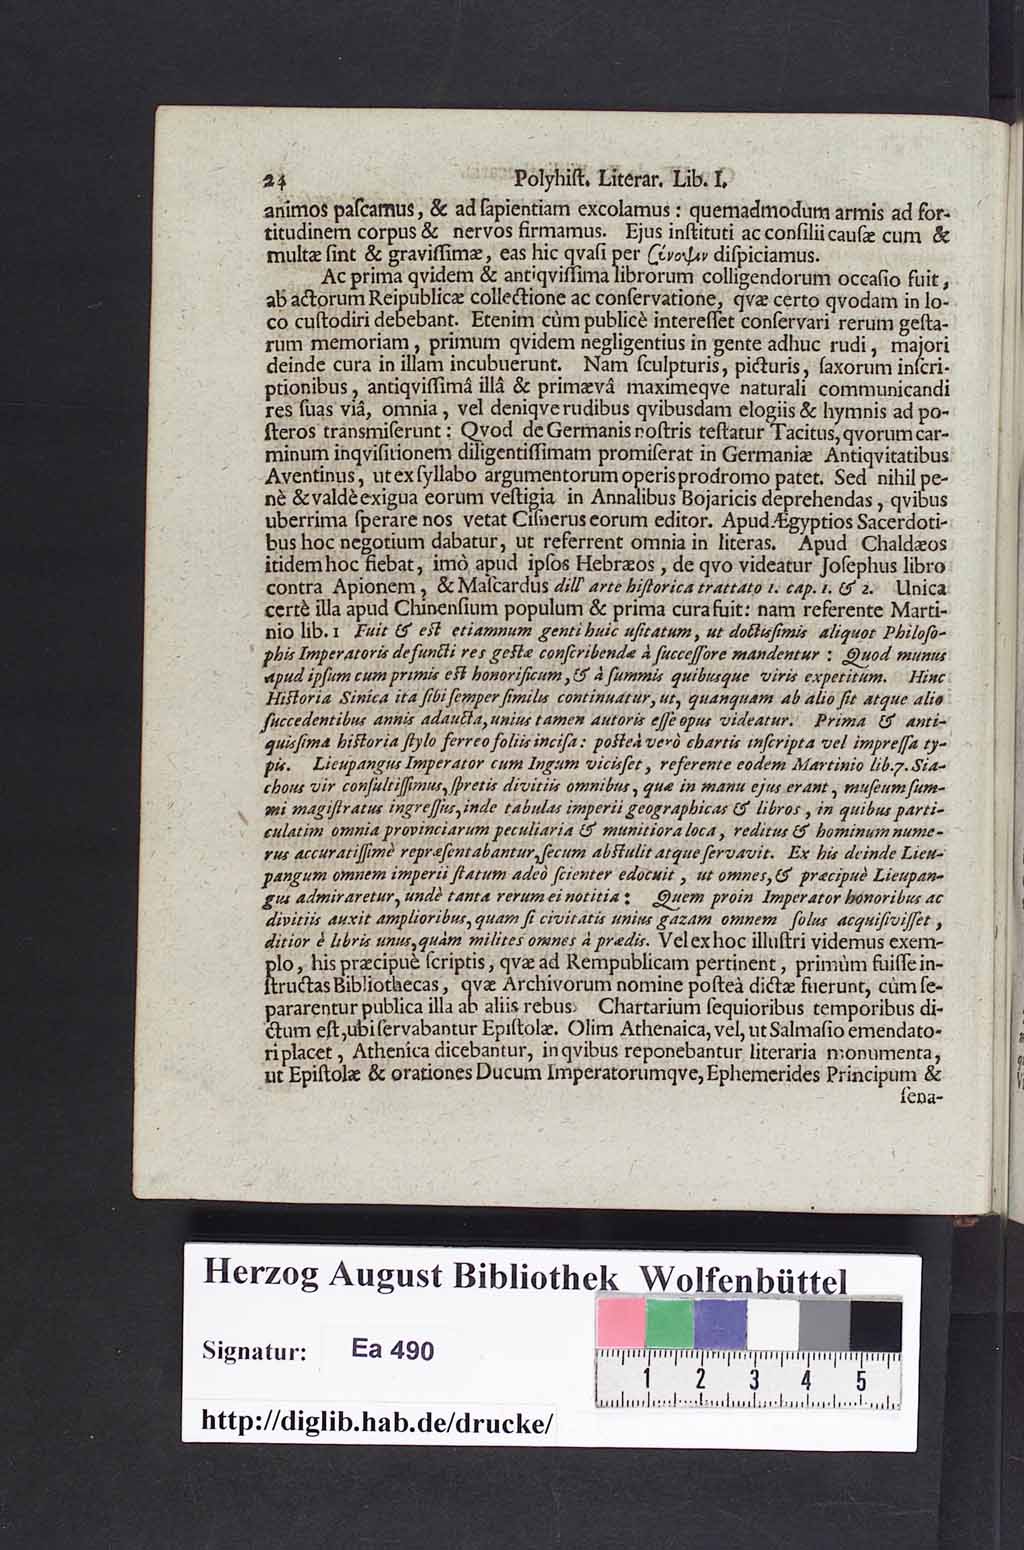 24 Polyhiſt. Literar. Lib. I.
animos paſcamus, & ad ſapientiam excolamus: quemadmodum armis ad for-
titudinem corpus & nervos firmamus. Ejus inſtituti ac conſilii cauſæ cum &
multæ ſint & graviſſimæ, eas hic qvaſi per σύνοψιν diſpiciamus.
Ac prima qvidem & antiqviſſima librorum colligendorum occaſio fuit,
ab actorum Reipublicæ collectione ac conſervatione, qvæ certo qvodam in lo-
co cuſtodiri debebant. Etenim cùm publicè intereſſet conſervari rerum geſta-
rum memoriam, primum qvidem negligentius in gente adhuc rudi, majori
deinde cura in illam incubuerunt. Nam ſculpturis, picturis, ſaxorum inſcri-
ptionibus, antiqviſſimâ illâ & primævâ maximeqve naturali communicandi
res ſuas viâ, omnia, vel deniqve rudibus qvibusdam elogiis & hymnis ad po-
ſteros transmiſerunt: Qvod de Germanis noſtris teſtatur Tacitus, qvorum car-
minum inqviſitionem diligentiſſimam promiſerat in Germaniæ Antiqvitatibus
Aventinus, ut ex ſyllabo argumentorum operis prodromo patet. Sed nihil pe-
nè & valdè exigua eorum veſtigia in Annalibus Bojaricis deprehendas, qvibus
uberrima ſperare nos vetat Ciſnerus eorum editor. Apud Ægyptios Sacerdoti-
bus hoc negotium dabatur, ut referrent omnia in literas. Apud Chaldæos
itidem hoc fiebat, imò apud ipſos Hebræos, de qvo videatur Joſephus libro
contra Apionem, & Maſcardus dill' arte hiſtorica trattato 1. cap. 1. & 2. Unica
certè illa apud Chinenſium populum & prima cura fuit: nam referente Marti-
nio lib. 1 Fuit & eſt etiamnum genti huic uſitatum, ut doctisſimis aliquot Philoſo-
phis Imperatoris defuncti res geſtæ conſcribendæ à ſucceſſore mandentur: Quod munus
apud ipſum cum primis eſt honorificum, & à ſummis quibusque viris expetitum. Hinc
Hiſtoria Sinica ita ſibi ſemper ſimilis continuatur, ut, quanquam ab alio ſit atque alio
ſuccedentibus annis adaucta, unius tamen autoris eſſe opus videatur. Prima & anti-
quisſima hiſtoria ſtylo ferreo foliis inciſa: poſteà verò chartis inſcripta vel impreſſa ty-
pis. Lieupangus Imperator cum Ingum viciſſet, referente eodem Martinio lib. 7. Sia-
chous vir conſultiſſimus, ſpretis divitiis omnibus, quæ in manu ejus erant, muſeum ſum-
mi magiſtratus ingreſſus, inde tabulas imperii geographicas & libros, in quibus parti-
culatim omnia provinciarum peculiaria & munitiora loca, reditus & hominum nume-
rus accuratiſſimè repræſentabantur, ſecum abſtulit atque ſervavit. Ex his deinde Lieu-
pangum omnem imperii ſtatum adeò ſcienter edocuit, ut omnes, & præcipuè Lieupan-
gus admiraretur, undè tanta rerum ei notitia: Quem proin Imperator honoribus ac
divitiis auxit amplioribus, quam ſi civitatis unius gazam omnem ſolus acquiſiviſſet,
ditior è libris unus, quàm milites omnes à prædis. Vel ex hoc illuſtri videmus exem-
plo, his præcipuè ſcriptis, qvæ ad Rempublicam pertinent, primùm fuiſſe in-
ſtructas Bibliothecas, qvæ Archivorum nomine poſteà dictæ fuerunt, cùm ſe-
pararentur publica illa ab aliis rebus. Chartarium ſequioribus temporibus di-
ctum eſt, ubi ſervabantur Epiſtolæ. Olim Athenaica, vel, ut Salmaſio emendato-
ri placet, Athenica dicebantur, in qvibus reponebantur literaria monumenta,
ut Epiſtolæ & orationes Ducum Imperatorumqve, Ephemerides Principum &
ſena-
Herzog August Bibliothek Wolfenbüttel
Signatur: Ea 490
1 2 3 4 5
http://diglib.hab.de/drucke/